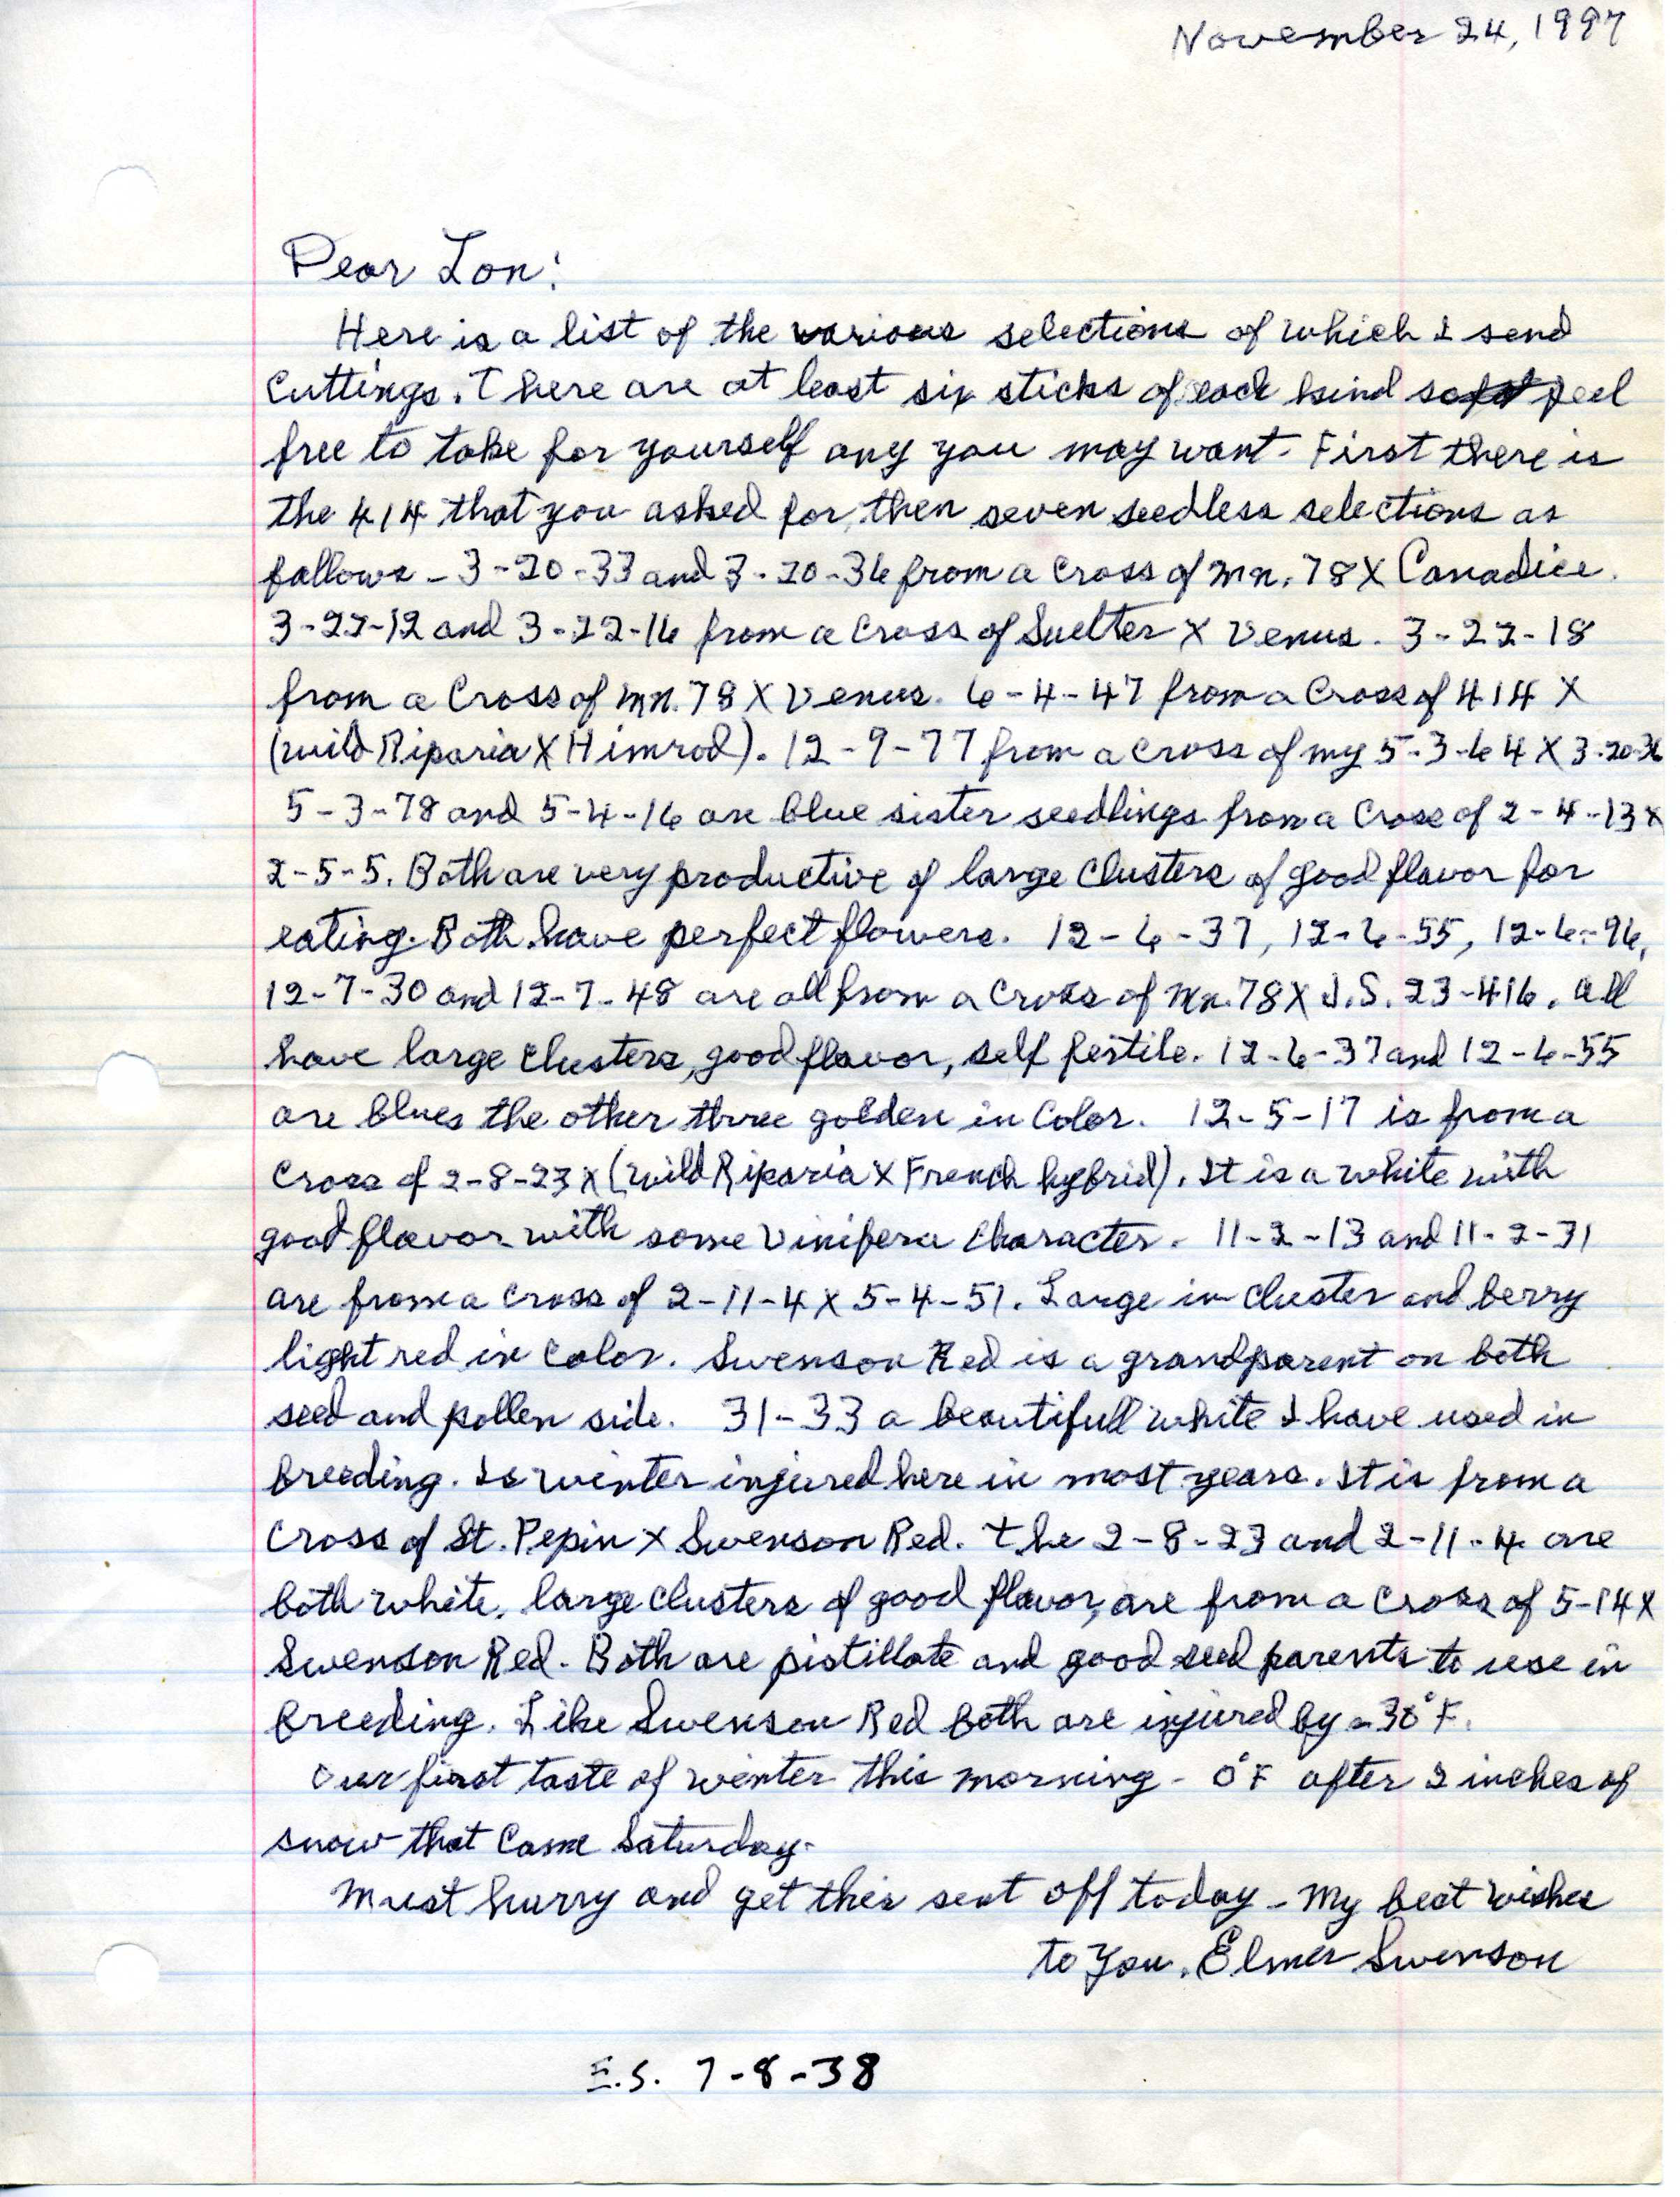 November 24, 1997
Dear Lon:
Here is a list of the various selections of which I send
Cuttings. There are at least six sticks of each kind so feel
free to take for yourself any you may want. First there is
the 414 that you asked for, then seven seedless selections as
follows - 3-20-33 and 3-20-36 from a Cross of Mn. 78 X Canadice.
3-22-12 and 3-22-16 from a Cross of Suelter X Venus. 3-22-18
from a Cross of Mn. 78 X Venus. 6-4-47 from a Cross of 414 X
(wild Riparia X Himrod). 12-9-77 from a cross of my 5-3-64 X 3-20-36
5-3-78 and 5-4-16 are blue sister seedlings from a Cross of 2-4-13 X
2-5-5. Both are very productive of large Clusters of good flavor for
eating. Both have perfect flowers. 12-6-37, 12-6-55, 12-6-96,
12-7-30 and 12-7-48 are all from a Cross of Mn. 78 X J.S. 23-416. All
have large Clusters, good flavor, self fertile. 12-6-37 and 12-6-55
are blues the other three golden in Color. 12-5-17 is from a
Cross of 2-8-23 X (wild Riparia X French hybrid). It is a white with
good flavor with some Vinifera Character. 11-2-13 and 11-2-31
are from a Cross of 2-11-4 X 5-4-51. Large in Cluster and berry
light red in Color. Swenson Red is a grandparent on both
seed and pollen side. 31-33 a beautifull white I have used in
breeding. Is winter injured here in most years. It is from a
Cross of St. Pepin X Swenson Red. The 2-8-23 and 2-11-4 are
both white, large clusters of good flavor, are from a Cross of 5-14 X
Swenson Red. Both are pistillate and good seed parents to use in
breeding. Like Swenson Red both are injured by -30°F.
Our first taste of winter this morning - 0°F after 2 inches of
snow that Came Saturday.
Must hurry and get this sent off today - My best wishes
to You. Elmer Swenson
E.S. 7-8-38